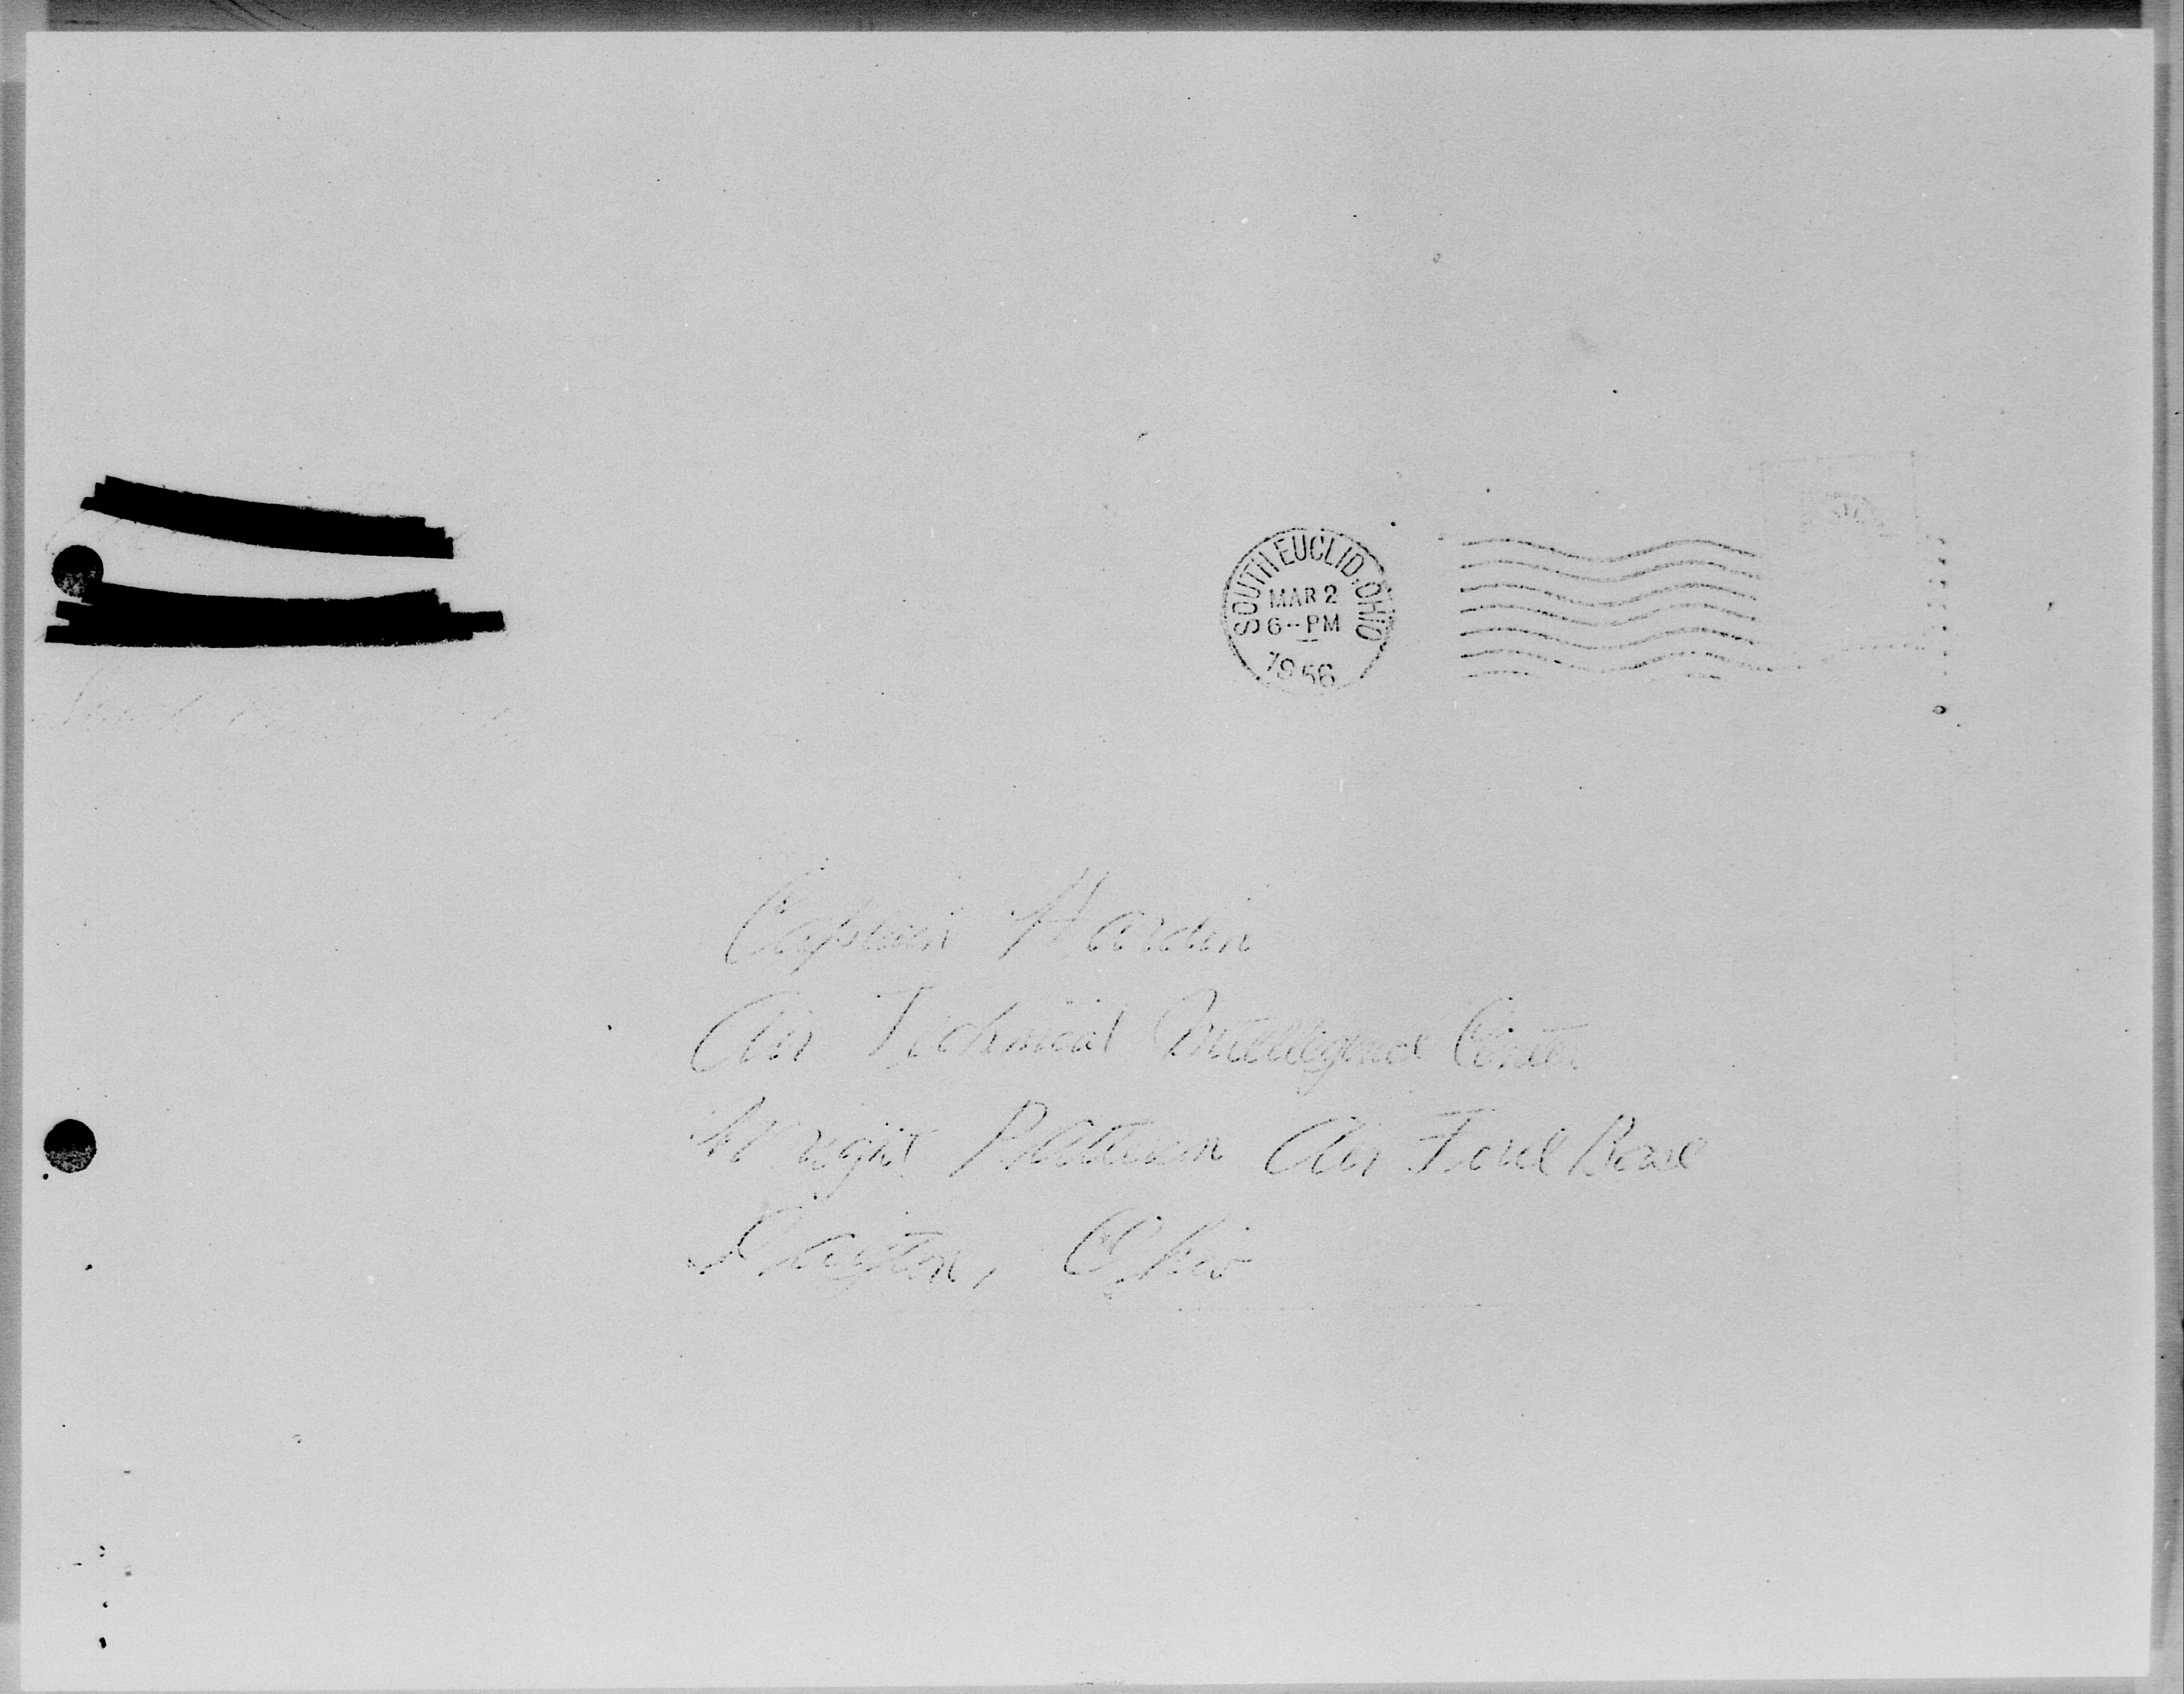 SOUTH EUCLID, OHIO
MAR 2
6--PM
1956
Captain Hardin
Air Technical Intelligence Center
Wright Patterson Air Force Base
Dayton, Ohio